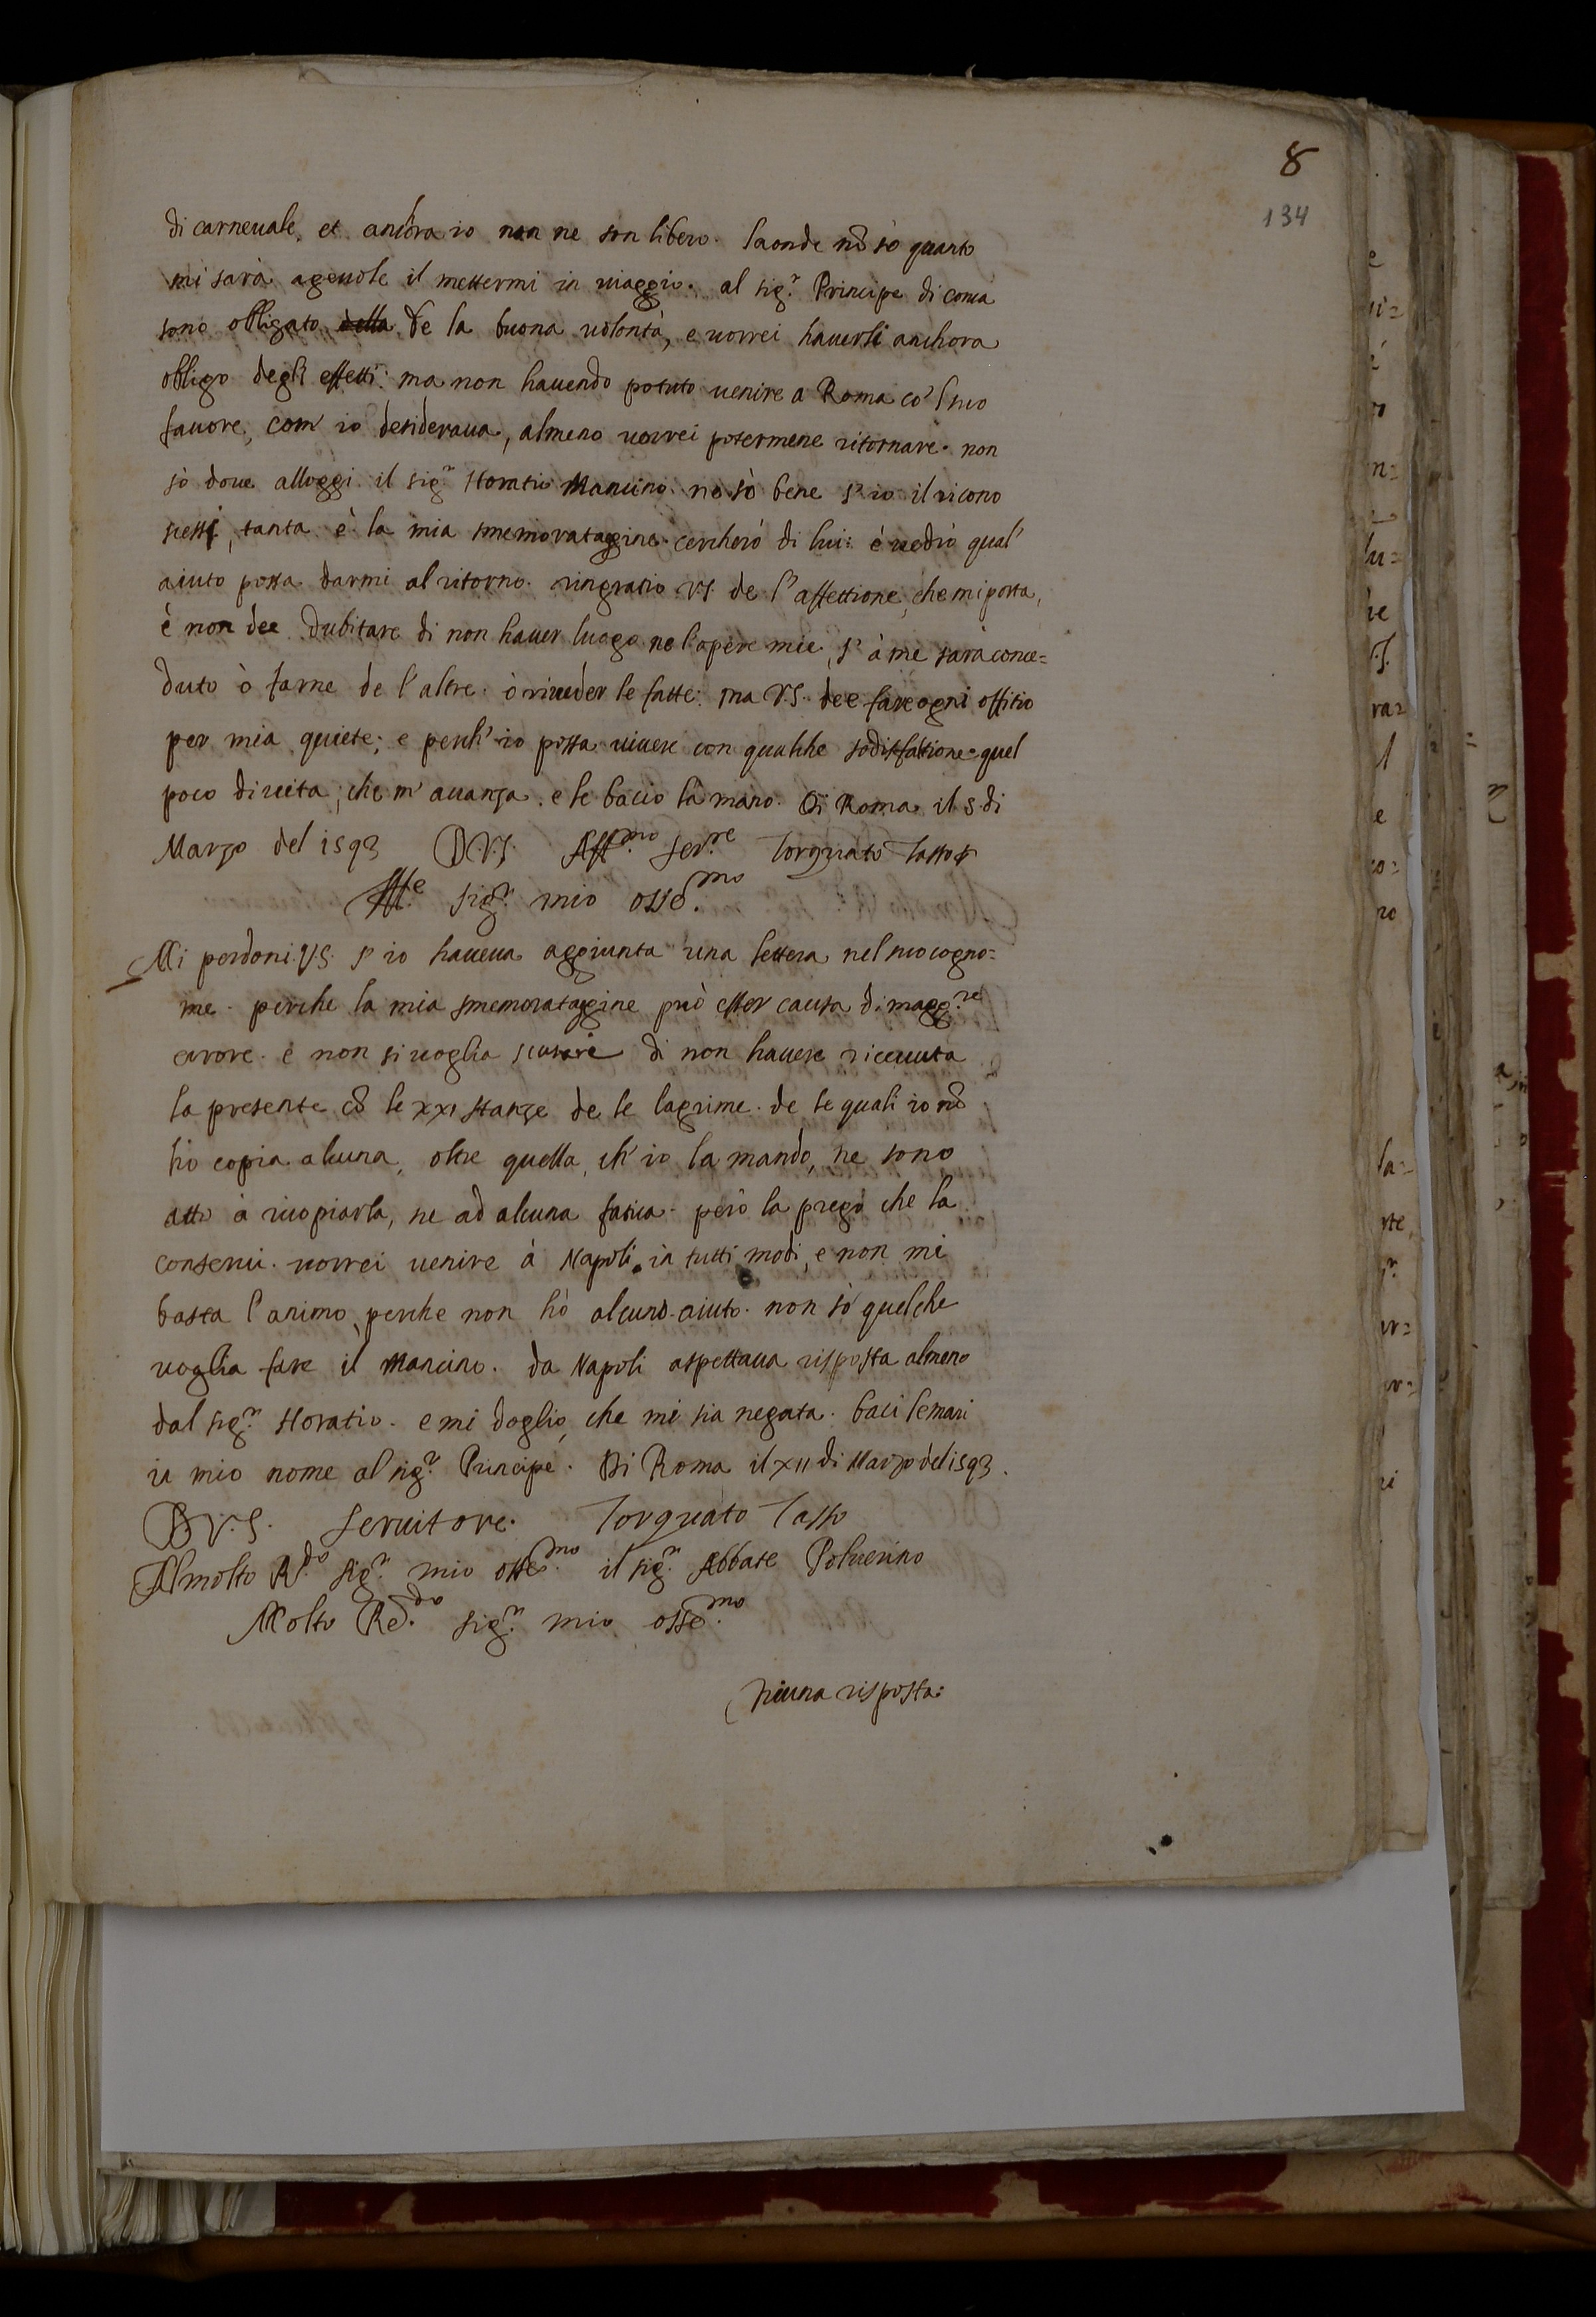 8
134
di carneuale, et anchora io non ne son libero. laonde nõ sò quanto
mi sarà ageuole il mettermi in uiaggio. al sig.r Principe di conca
sono obligato della de la buona uolontà, e uorrei hauerli anchora
obligo degli effetti: ma non hauendo potuto uenire a Roma co'l suo
fauore, com' io desideraua, almeno uorrei potermene ritornare. non
sò doue alloggi il sig.r Horatio Mancino. ne sò bene s' io il ricono
scessi, tanta è la mia smemoratagine. cercherò di lui: è uedrò qual'
aiuto possa darmi al ritorno. ringratio V.S. de l' affettione, che mi porta,
è non dee dubitare di non hauer luogo ne l'opere mie, s' à me sarà conce=
duto ò farne de l'altre. ò riueder le fatte: ma V.S. dee fare ogni offitio
per mia quiete; e perch' io possa uiuere con qualche sodisfatione quel
poco di uita, che m' auanza. e le bacio la mano. Di Roma il 5. di
Marzo del 1593 D.V.S. Aff.mo ser.re Torquato Tasso
Ill.e sig.r mio osse.mo
Mi perdoni V.S. s' io haueua aggiunta una lettera nel suo cogno=
me. perche la mia smemoratagine può esser causa di magg.re
errore. e non si uoglia scusare di non hauere riceuuta
la presente cõ le xxi stanze de le lagrime. de le quali io nõ
hò copia alcuna, oltre quella, ch' io la mando, ne sono
atto à ricopiarla, ne ad alcuna fatica. però la prego che la
conserui. uorrei uenire à Napoli in tutti modi, e non mi
basta l'animo, perche non hò alcuno aiuto. non sò quelche
uoglia fare il Mancino. da Napoli aspettaua risposta almeno
dal sig.r Horatio. e mi doglio, che mi sia negata. baci le mani
in mio nome al sig.r Principe. Di Roma il xii di Marzo del 1593.
D.V.S. seruitore. Torquato Tasso
Al molto R.do sig.r mio osse.mo il sig.r Abbate Poluerino
Molto Re.do sig.r mio osse.mo
Niuna risposta: